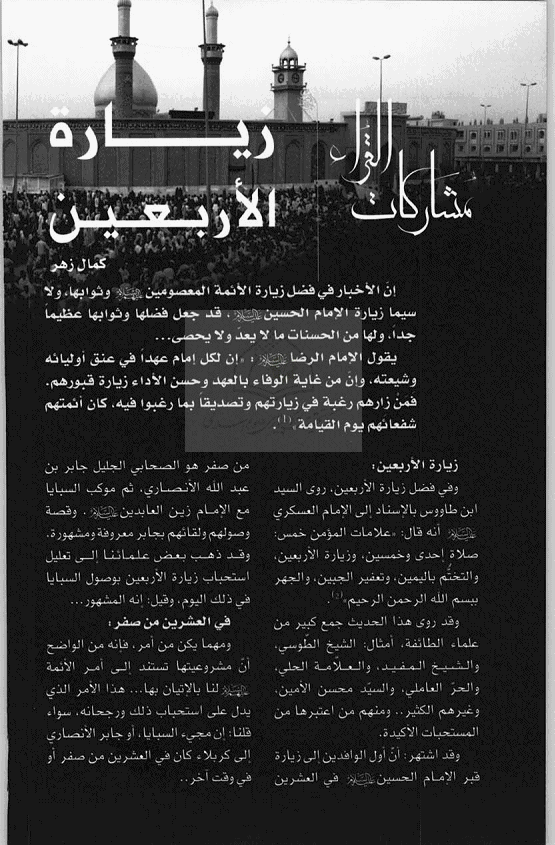 مشاركات القراء
زيارة
الأربعين
كمال زهر
إنّ الأخبار في فضل زيارة الأئمة المعصومين عليهم السلام وثوابها، ولا
سيما زيارة الإمام الحسين عليه السلام، قد جعل فضلها وثوابها عظيماً
جداً، ولها من الحسنات ما لا يعدّ ولا يحصى...
يقول الإمام الرضا عليه السلام: «إن لكل إمام عهداً في عنق أوليائه
وشيعته، وانّ من غاية الوفاء بالعهد وحسن الأداء زيارة قبورهم.
فمنْ زارهم رغبة في زيارتهم وتصديقاً بما رغبوا فيه، كان أئمتهم
شفعائهم يوم القيامة»(١).
زيارة الأربعين:
وفي فضل زيارة الأربعين، روى السيد
ابن طاووس بالإسناد إلى الإمام العسكري
عليه السلام أنه قال: «علامات المؤمن خمس:
صلاة إحدى وخمسين، وزيارة الأربعين،
والتختُّم باليمين، وتعفير الجبين، والجهر
ببسم الله الرحمن الرحيم».
وقد روى هذا الحديث جمع كبير من
علماء الطائفة، أمثال: الشيخ الطّوسي،
والشيخ المفيد، والعلاّمة الحلي،
والحرّ العاملي، والسيّد محسن الأمين،
وغيرهم الكثير.. ومنهم من اعتبرها من
المستحبات الأكيدة.
وقد اشتهر: أنّ أول الوافدين إلى زيارة
قبر الإمام الحسين عليه السلام في العشرين
من صفر هو الصحابي الجليل جابر بن
عبد الله الأنصاري، ثم موكب السبايا
مع الإمام زين العابدين عليه السلام. وقصة
وصولهم ولقائهم بجابر معروفة ومشهورة.
وقد ذهب بعض علمائنا إلى تعليل
استحباب زيارة الأربعين بوصول السبايا
في ذلك اليوم، وقيل: إنه المشهور...
في العشرين من صفر:
ومهما يكن من أمر، فإنه من الواضح
أنّ مشروعيتها تستند إلى أمر الأئمة
عليهم السلام لنا بالإتيان بها... هذا الأمر الذي
يدل على استحباب ذلك ورجحانه، سواء
قلنا: إن مجيء السبايا، أو جابر الأنصاري
إلى كربلاء كان في العشرين من صفر أو
في وقت آخر..